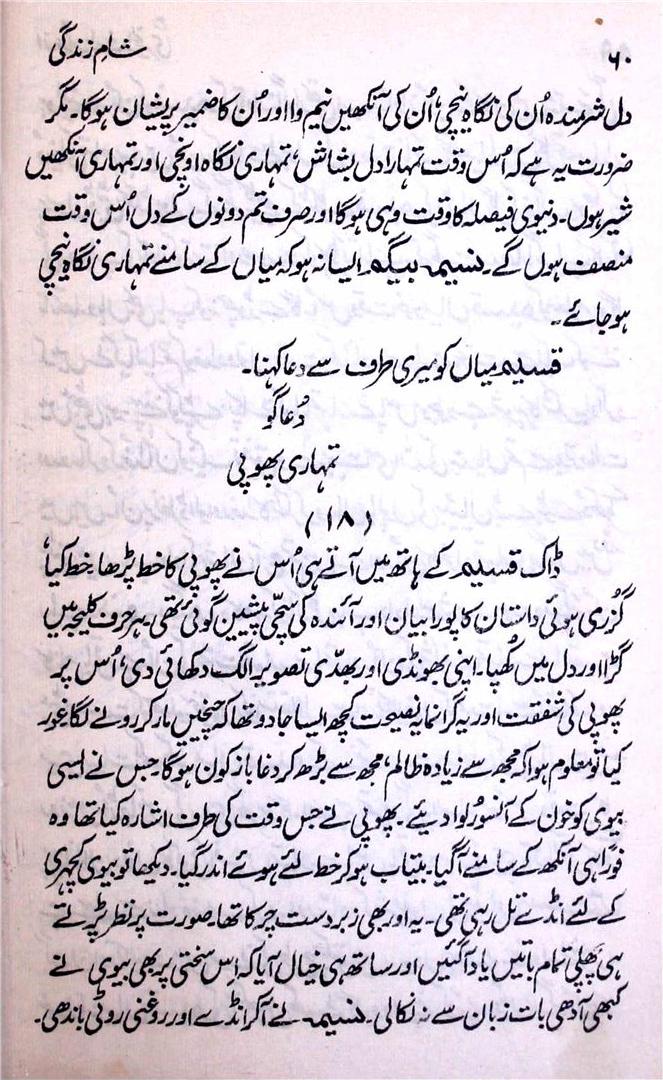 ۶۰
شامِ زندگی
دل شرمندہ اُن کی نگاہ نیچی، اُن کی آنکھیں نیم وا اور اُن کا ضمیر پریشان ہوگا۔ مگر
ضرورت یہ ہے کہ اُس وقت تمہارا دل بشاش، تمہاری نگاہ اونچی اور تمہاری آنکھیں
شیر ہوں۔ دنیوی فیصلہ کا وقت وہی ہوگا اور صرف تم دونوں کے دل اُس وقت
منصف ہوں گے۔ نسیمہ بیگم ایسا نہ ہو کہ میاں کے سامنے تمہاری نگاہ نیچی
ہو جائے۔
قسیم میاں کو میری طرف سے دعا کہنا۔
دُعا گو
تمہاری پھوپی
(۱۸)
ڈاک قسیم کے ہاتھ میں آتے ہی اُس نے پھوپی کا خط پڑھا، خط کیا،
گزری ہوئی داستان کا پورا بیان اور آئندہ کی سچّی پیشین گوئی تھی۔ ہر حرف کلیجہ میں
گڑا اور دل میں کُھپا۔ اپنی بھونڈی اور بھدّی تصویر الگ دکھائی دی، اُس پر
پھوپی کی شفقت اور یہ گرانمایہ نصیحت کچھ ایسا جادو تھا کہ چیخیں مار کر رونے لگا غور
کیا تو معلوم ہوا کہ مجھ سے زیادہ ظالم، مجھ سے بڑھ کر دغا باز کون ہوگا۔ جس نے ایسی
بیوی کو خون کے آنسو رُلوا دیئے۔ پھوپی نے جس وقت کی طرف اشارہ کیا تھا وہ
فوراً ہی آنکھ کے سامنے آگیا۔ بیتاب ہو کر خط لئے ہوئے اندر گیا۔ دیکھا تو بیوی کچہری
کے لئے انڈے تل رہی تھی۔ یہ اور بھی زبردست چرکا تھا۔ صورت پر نظر پڑتے
ہی پچھلی تمام باتیں یاد آگئیں اور ساتھ ہی خیال آیا کہ اِس سختی پر بھی بیوی نے
کبھی آدھی بات زبان سے نہ نکالی۔ نسیمہ نے آکر انڈے اور روغنی روٹی باندھی۔